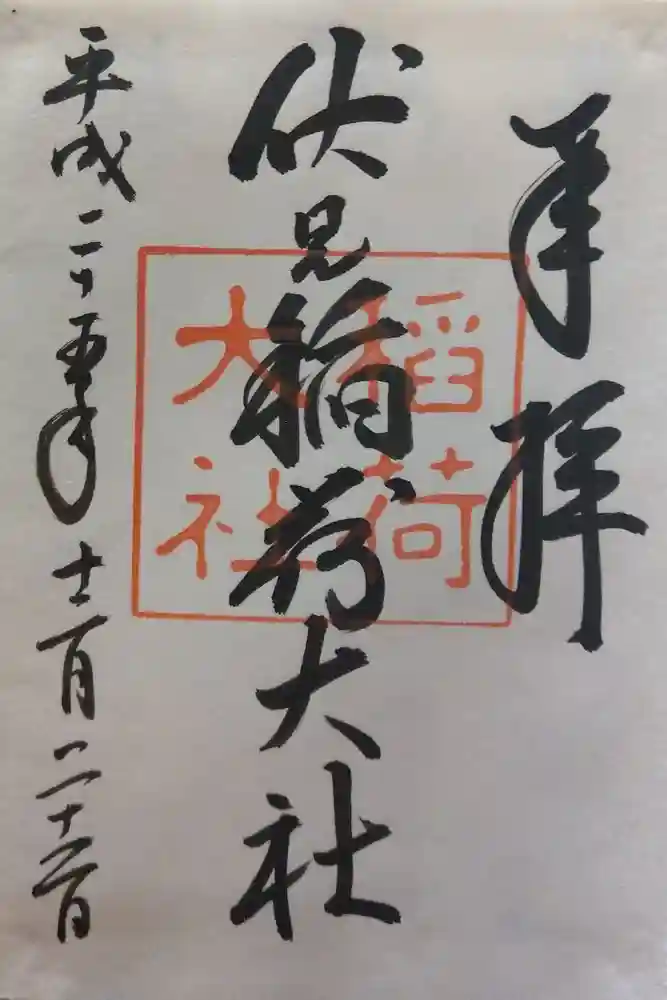 奉拝
伏見稲荷大社
稲荷
大社
平成二十五年十二月二十日